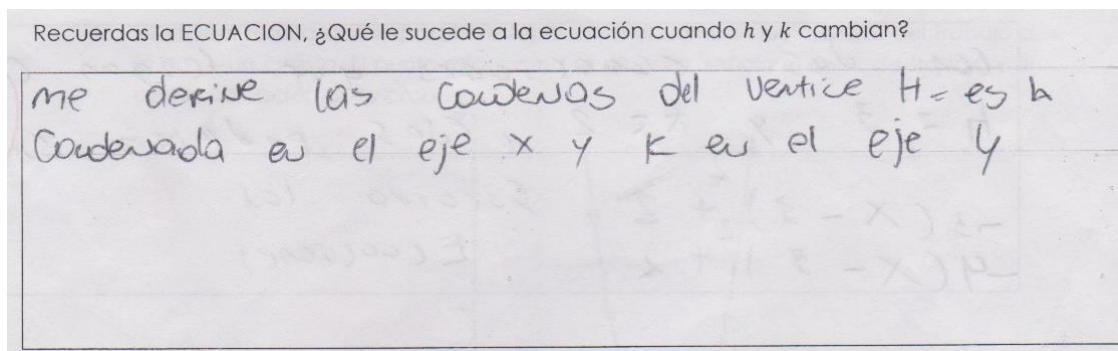 Recuerdas la ECUACION, ¿Qué le sucede a la ecuación cuando h y k cambian?
me derine las coordenas del vertice H = es la
Coordenada en el eje x y K en el eje y